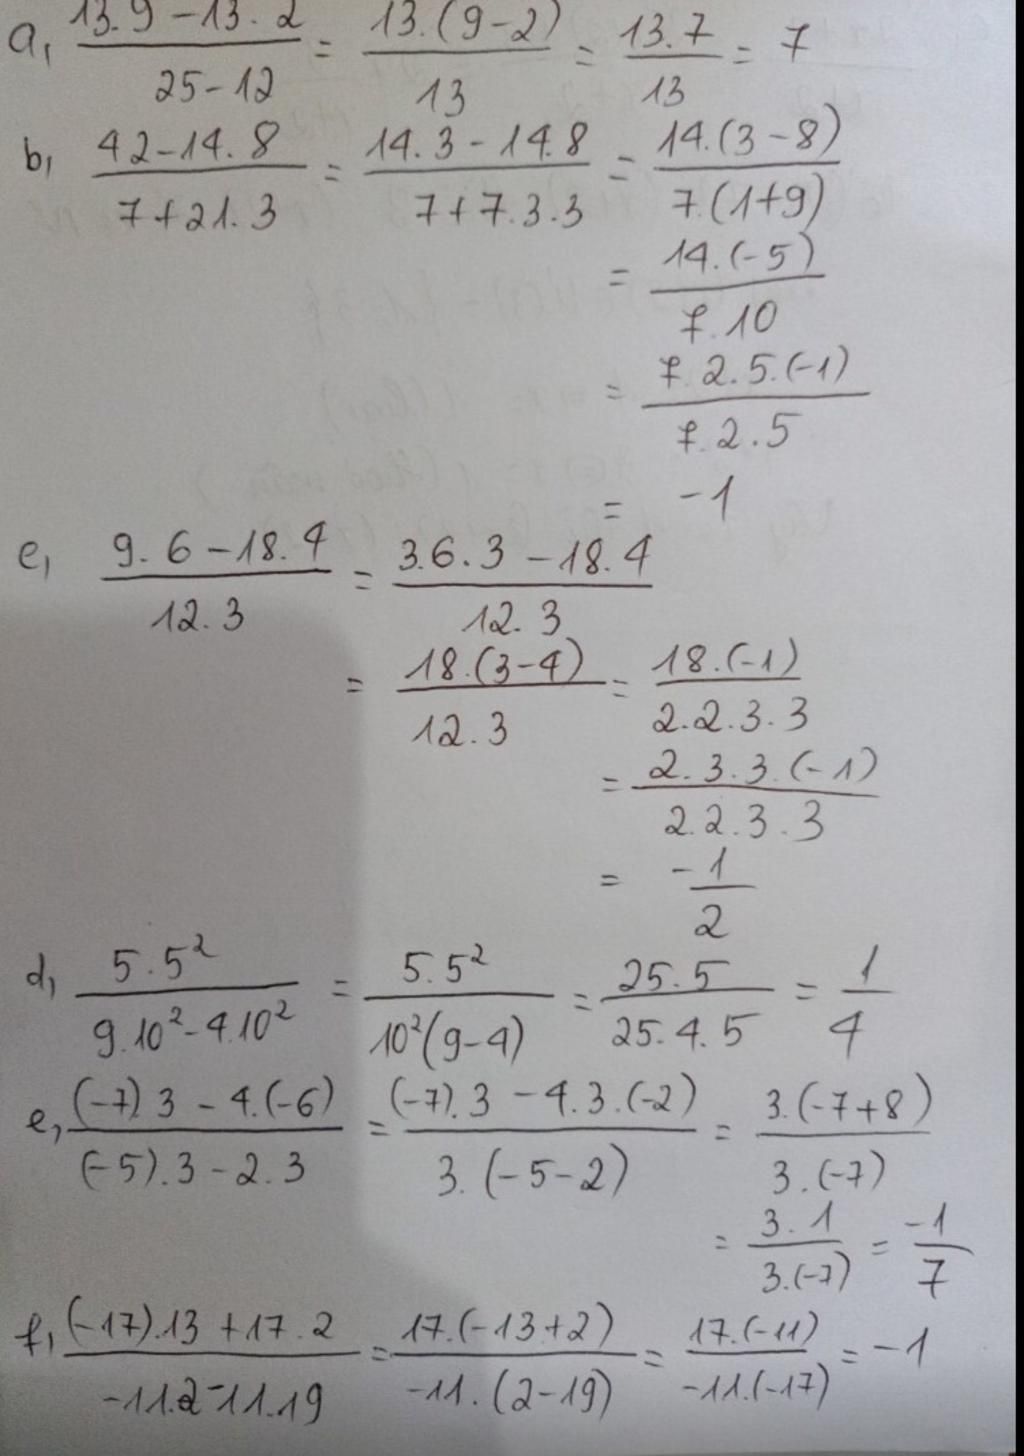 a, (13.9 - 13.2)/(25 - 12) = (13.(9-2))/13 = (13.7)/13 = 7
b, (42 - 14.8)/(7 + 21.3) = (14.3 - 14.8)/(7 + 7.3.3) = (14.(3-8))/(7.(1+9))
= (14.(-5))/(7.10)
= (7.2.5.(-1))/(7.2.5)
= -1
c, (9.6 - 18.4)/(12.3) = (3.6.3 - 18.4)/(12.3)
= (18.(3-4))/(12.3) = (18.(-1))/(2.2.3.3)
= (2.3.3.(-1))/(2.2.3.3)
= -1/2
d, (5.5²)/(9.10² - 4.10²) = (5.5²)/(10²(9-4)) = (25.5)/(25.4.5) = 1/4
e, ((-7).3 - 4.(-6))/((-5).3 - 2.3) = ((-7).3 - 4.3.(-2))/(3.(-5-2)) = (3.(-7+8))/(3.(-7))
= (3.1)/(3.(-7)) = -1/7
f, ((-17).13 + 17.2)/(-11.2 - 11.19) = (17.(-13+2))/(-11.(2-19)) = (17.(-11))/(-11.(-17)) = -1